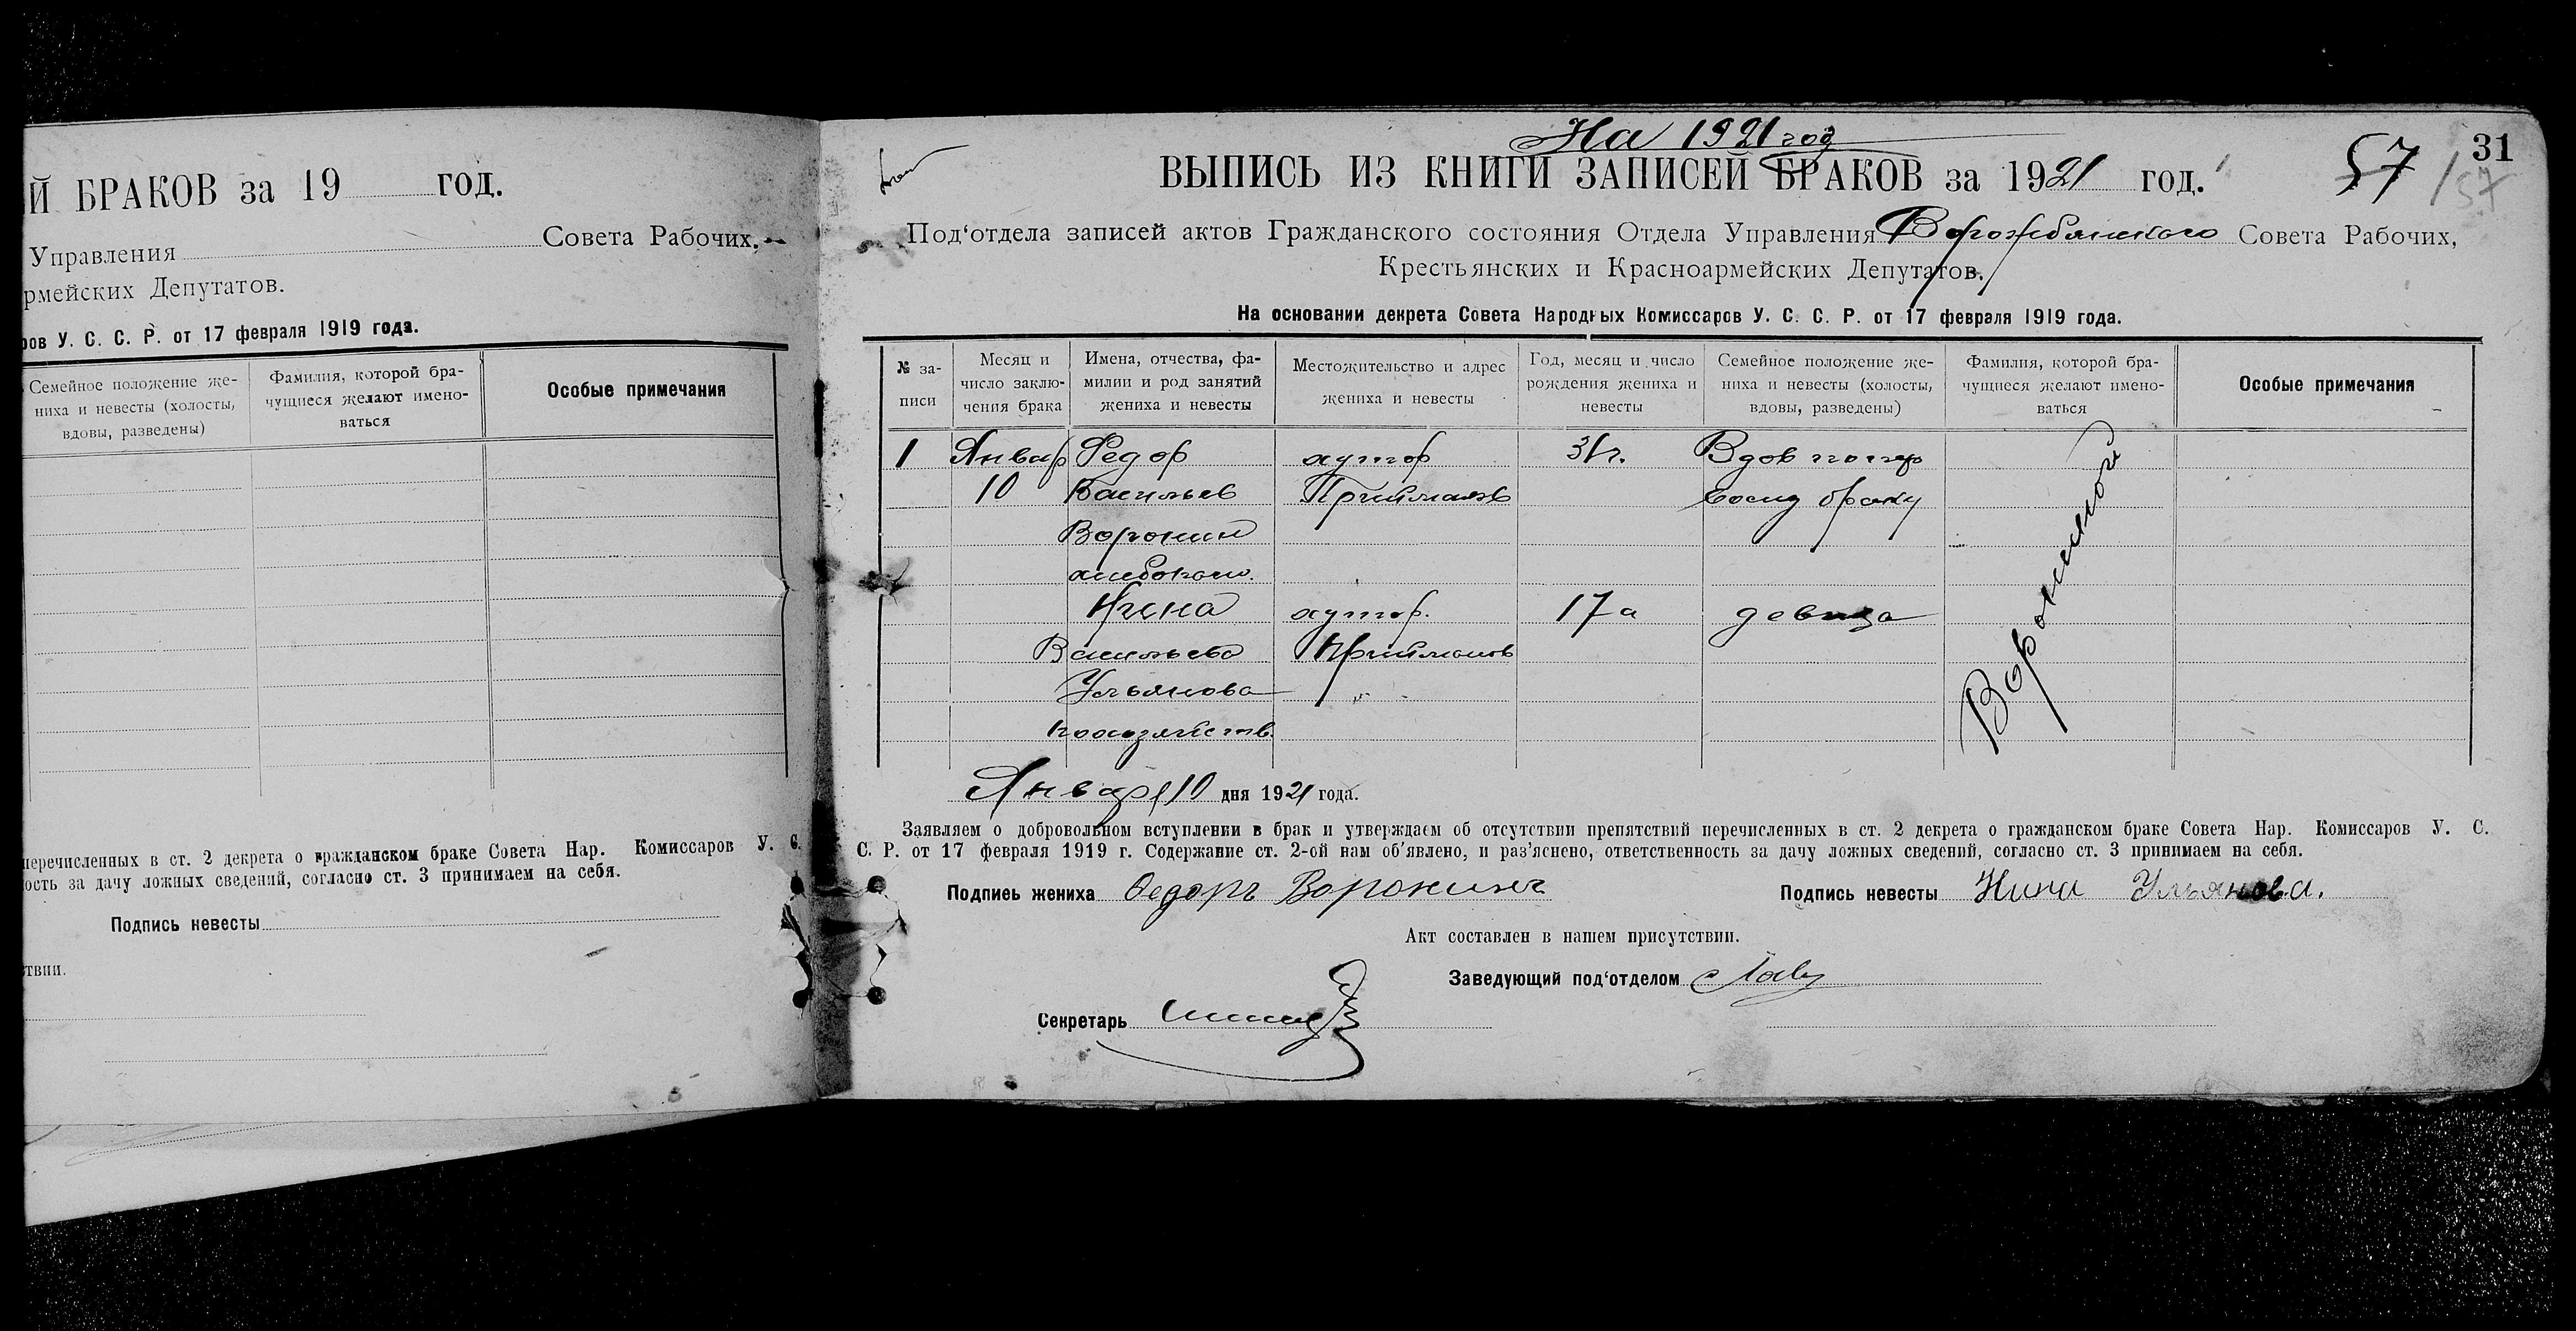 Й БРАКОВ за 19 год.
Управления Совета Рабочих,
рмейских Депутатов.
ров У. С. С. Р. от 17 февраля 1919 года.
Семейное положение же-
ниха и невесты (холосты,
вдовы, разведены)
Фамилия, которой бра-
чущиеся желают имено-
ваться
Особые примечания
перечисленных в ст. 2 декрета о гражданском браке Совета Нар. Комиссаров У. С.
ость за дачу ложных сведений, согласно ст. 3 принимаем на себя.
Подпись невесты
твии.
На 1921 год
31
ВЫПИСЬ ИЗ КНИГИ ЗАПИСЕЙ БРАКОВ за 1921 год.
57 / 57
Под‘отдела записей актов Гражданского состояния Отдела Управления Ворожбянского Совета Рабочих,
Крестьянских и Красноармейских Депутатов.
На основании декрета Совета Народных Комиссаров У. С. С. Р. от 17 февраля 1919 года.
№ за-
писи
Месяц и
число заклю-
чения брака
Имена, отчества, фа-
милии и род занятий
жениха и невесты
Местожительство и адрес
жениха и невесты
Год, месяц и число
рождения жениха и
невесты
Семейное положение же-
ниха и невесты (холосты,
вдовы, разведены)
Фамилия, которой бра-
чущиеся желают имено-
ваться
Особые примечания
1 Январ Федор хутор 31 г. Вдов
10 Васильев браку
Воронин
хлебопаш.
хутор. 17 л девица
Васильева
Ульянова
похозяйств.
Января 10 дня 1921 года.
Заявляем о добровольном вступлении в брак и утверждаем об отсутствии препятствий перечисленных в ст. 2 декрета о гражданском браке Совета Нар. Комиссаров У. С.
С. Р. от 17 февраля 1919 г. Содержание ст. 2-ой нам об'явлено, и раз'яснено, ответственность за дачу ложных сведений, согласно ст. 3 принимаем на себя.
Подпись жениха Федоръ Воронинъ Подпись невесты Нина Ульянова.
Акт составлен в нашем присутствии.
Заведующий под‘отделом
Секретарь